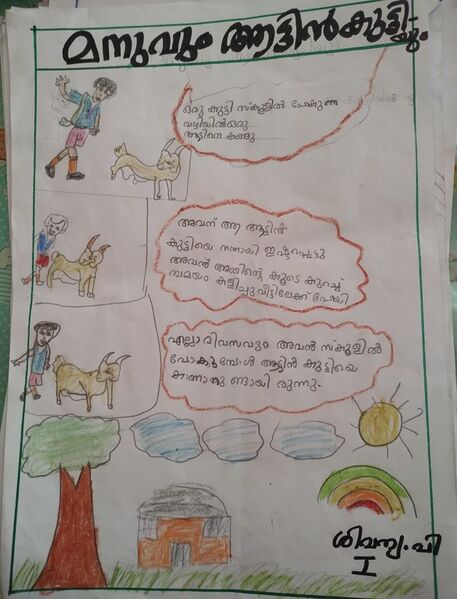 മനുവും ആട്ടിൻകുട്ടി-
യും
ഒരു കുട്ടി സ്കൂളിൽ പോകുന്ന
വഴിയിൽ ഒരു
ആടിനെ കണ്ടു
അവന് ആ ആട്ടിൻ
കുട്ടിയെ നന്നായി ഇഷ്ടപ്പെട്ടു
അവൻ അതിന്റെ കൂടെ കുറച്ച്
സമയം കളിച്ചു വീട്ടിലേക്ക് പോയി
എല്ലാ ദിവസവും അവൻ സ്കൂളിൽ
പോകുമ്പോൾ ആട്ടിൻ കുട്ടിയെ
കാണാറുണ്ടായിരുന്നു.
ശിവന്യ. പി
I